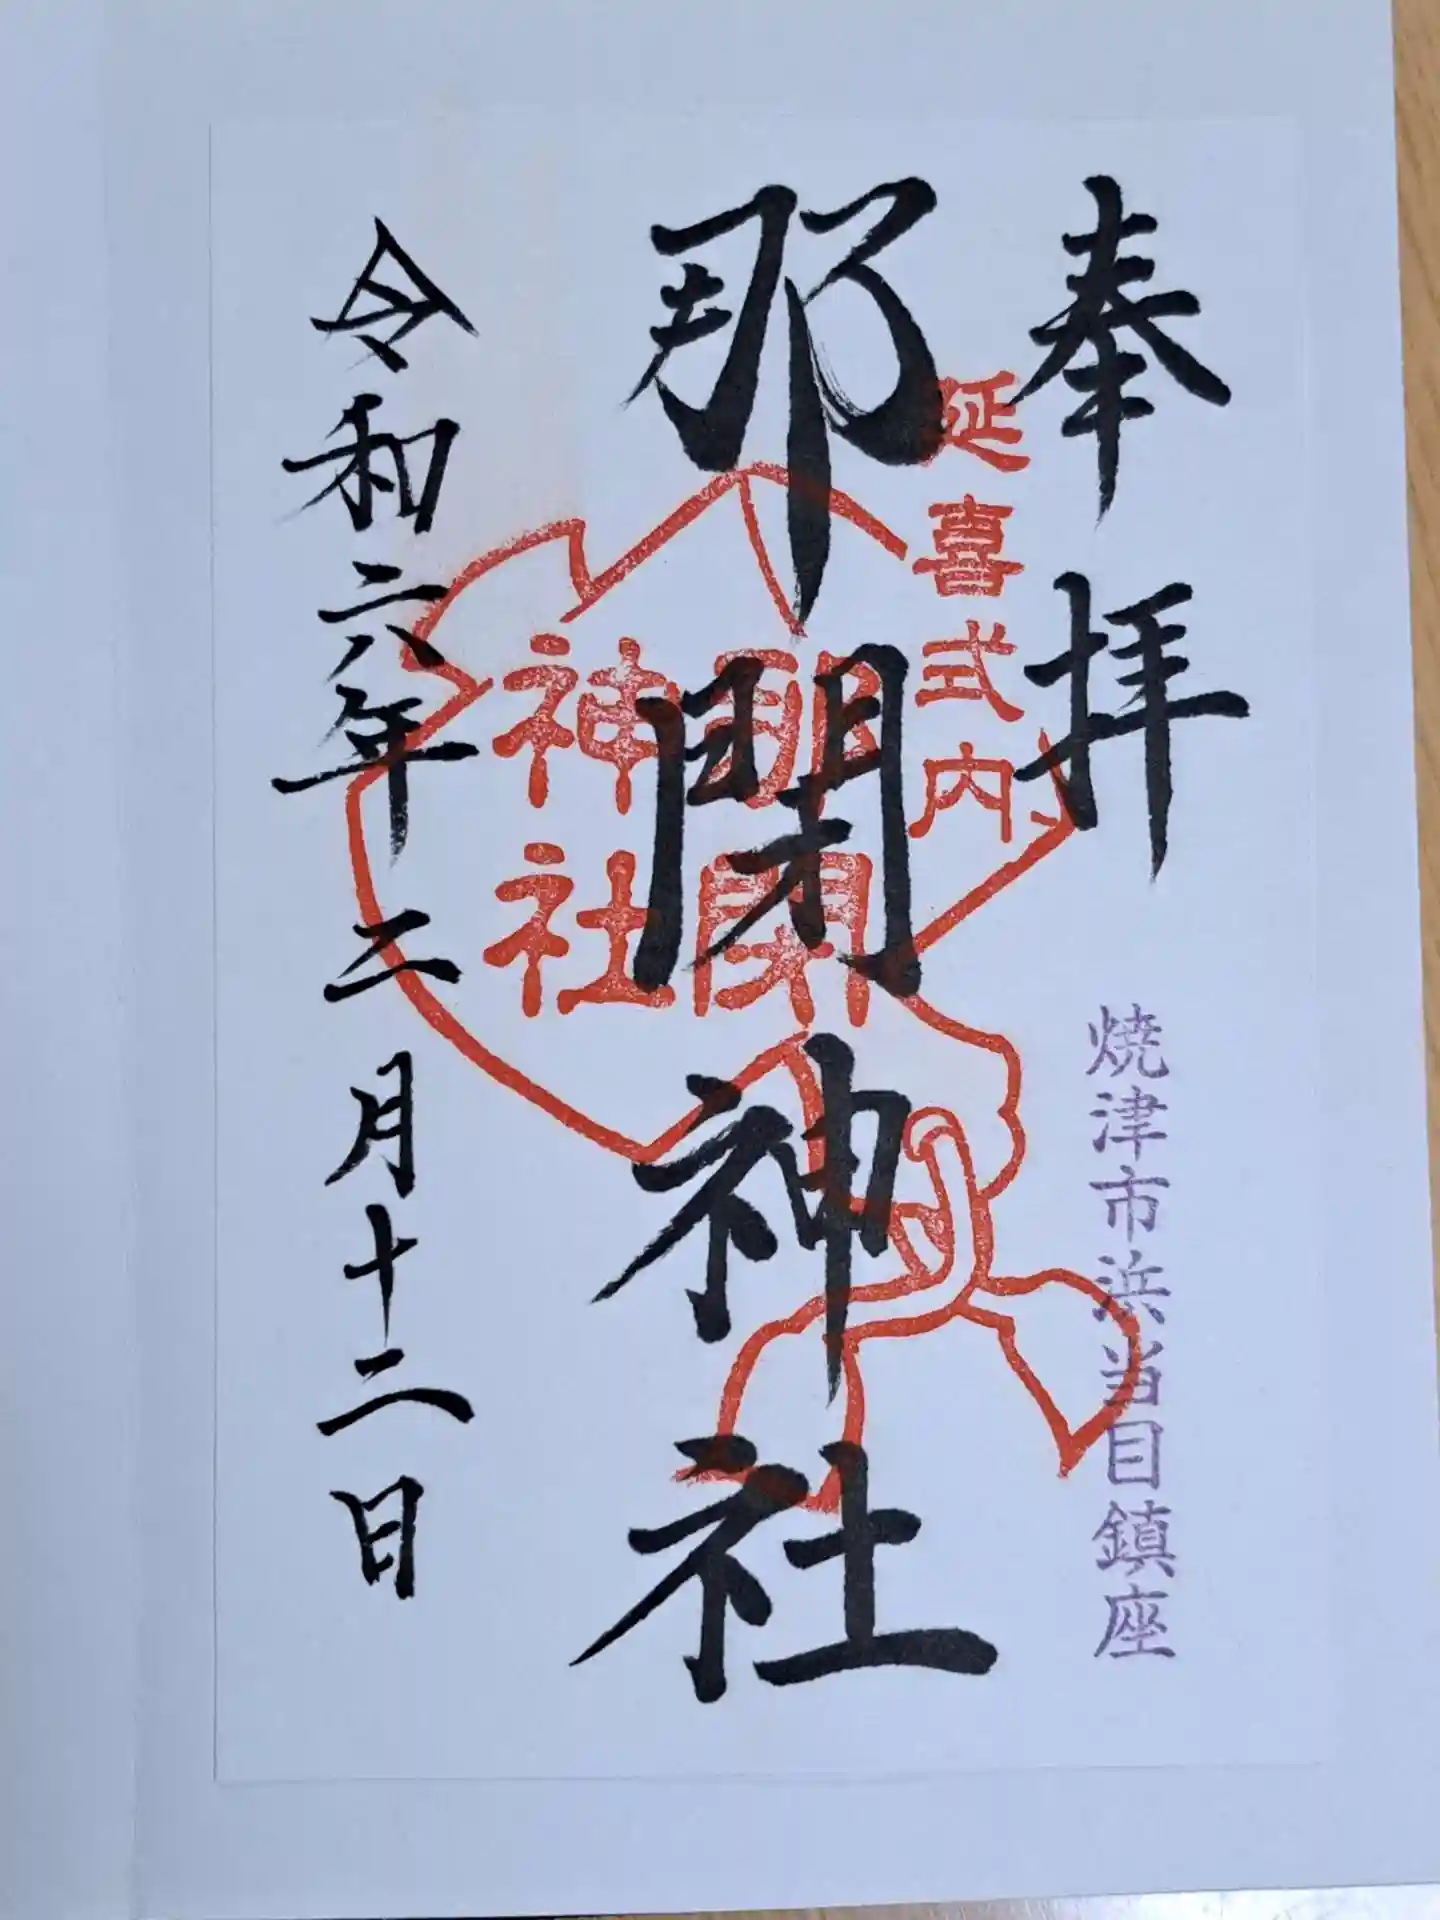 奉拝
延喜式内
焼津市浜当目鎮座
那閉神社
那閉
神社
令和六年二月十二日